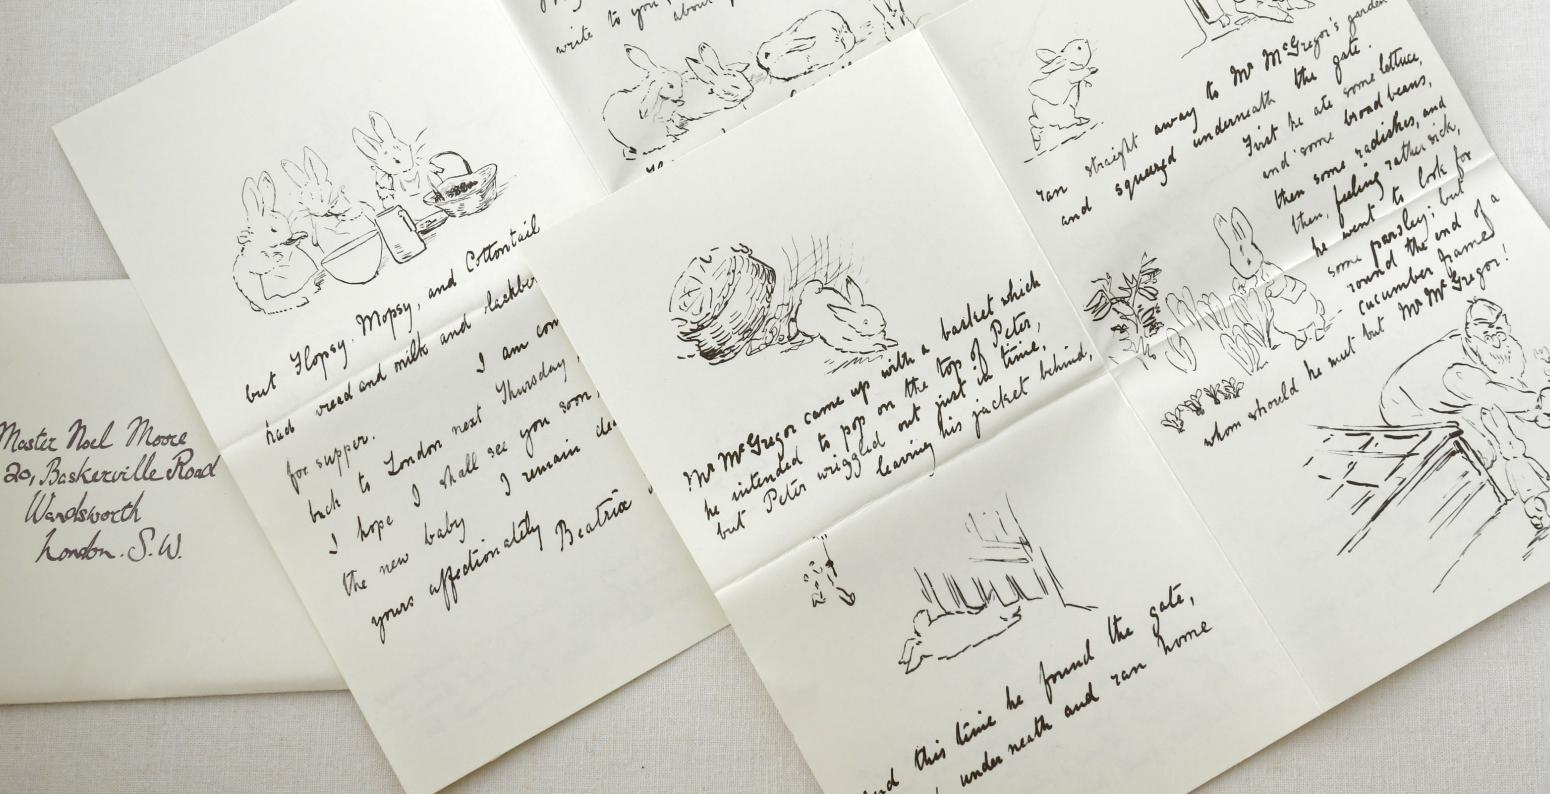 Master Noel Moore
20, Baskerville Road
Wandsworth
London. S.W.
but Flopsy, Mopsy, and Cottontail
had bread and milk and
for supper. I am
back to London next Thursday,
I hope I shall see you soon,
the new baby I remain
yours affectionately Beatrix
write to you,
about
Mr McGregor came up with a basket which
he intended to pop on the top of Peter,
but Peter wriggled out just in time,
leaving his jacket behind,
this time he found the gate,
underneath and ran home
ran straight away to Mr McGregor's garden
and squeezed underneath the gate.
First he ate some lettuce,
and some broad beans,
then some radishes, and
then, feeling rather sick,
he went to look for
some parsley; but
round the end of a
cucumber frame
whom should he meet but Mr McGregor!